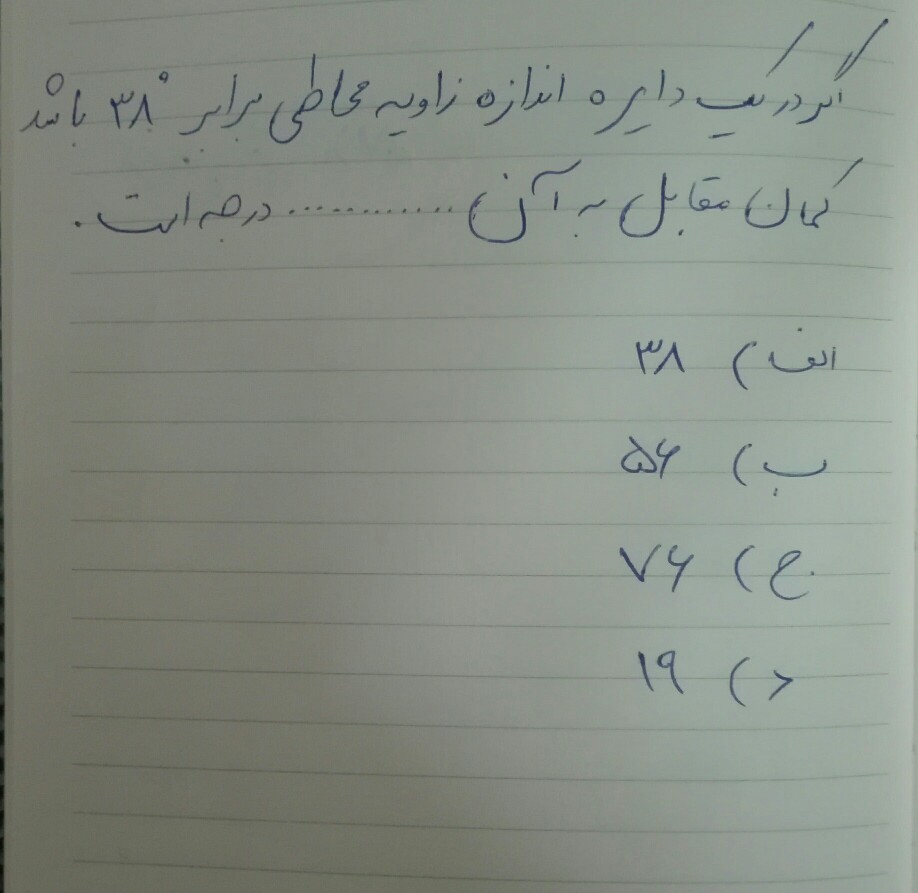 اگر در یک دایره اندازه زاویه محاطی برابر ۳۸° باشد
کمان مقابل به آن ............ درجه است.
الف) ۳۸
ب) ۵۶
ج) ۷۶
د) ۱۹